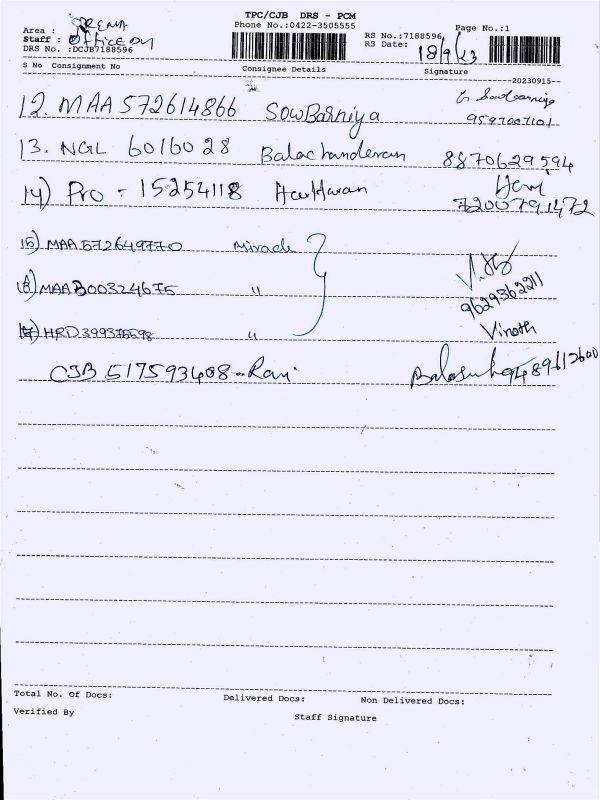 TPC/CJB DRS - PCM
Phone No.:0422-3505555
Page No.:1
Area :
Staff : Office
DRS No. :DCJB7188596
RS No.:7188596
RS Date: 18/9/23
S No Consignment No Consignee Details Signature
--20230915--
12. MAA 572614866 SowBarniya
13. NGL 6016028 Balachanderan 8870629594
14) Pro - 15254118 Hariharan 7200791472
15) MAA 572649770 Miracle
MAA300324675 "
9629362211
HRD399375598 "
Vinoth
CJB 517593408 - Ravi
Total No. Of Docs: Delivered Docs: Non Delivered Docs:
Verified By Staff Signature